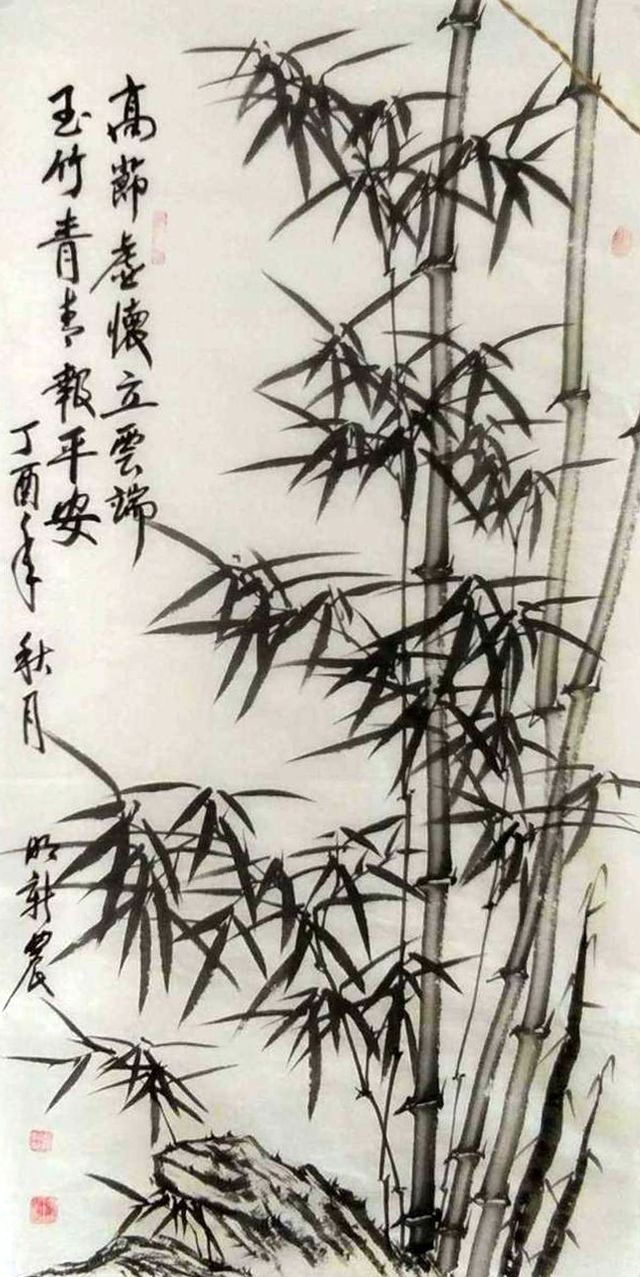 高節虛懷立雲端
玉竹青青報平安
丁酉年 秋月
新農